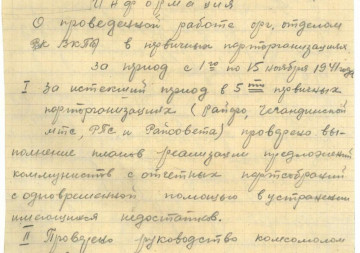 Информация
О проведенной работе орг. отделом
РК ВКПб в первичных парторганизациях
за период с 1го по 15 ноября 1941 года
I За истекший период в 5ти первичных
парторганизациях (Райфо,
МТС, РПС и Райсовета) проведено вы-
полнение планов реализации предложений
коммунистов с отчетных партсобраний
с одновременной помощью в устранении
имеющихся недостатков.
II Проверено руководство комсомолом